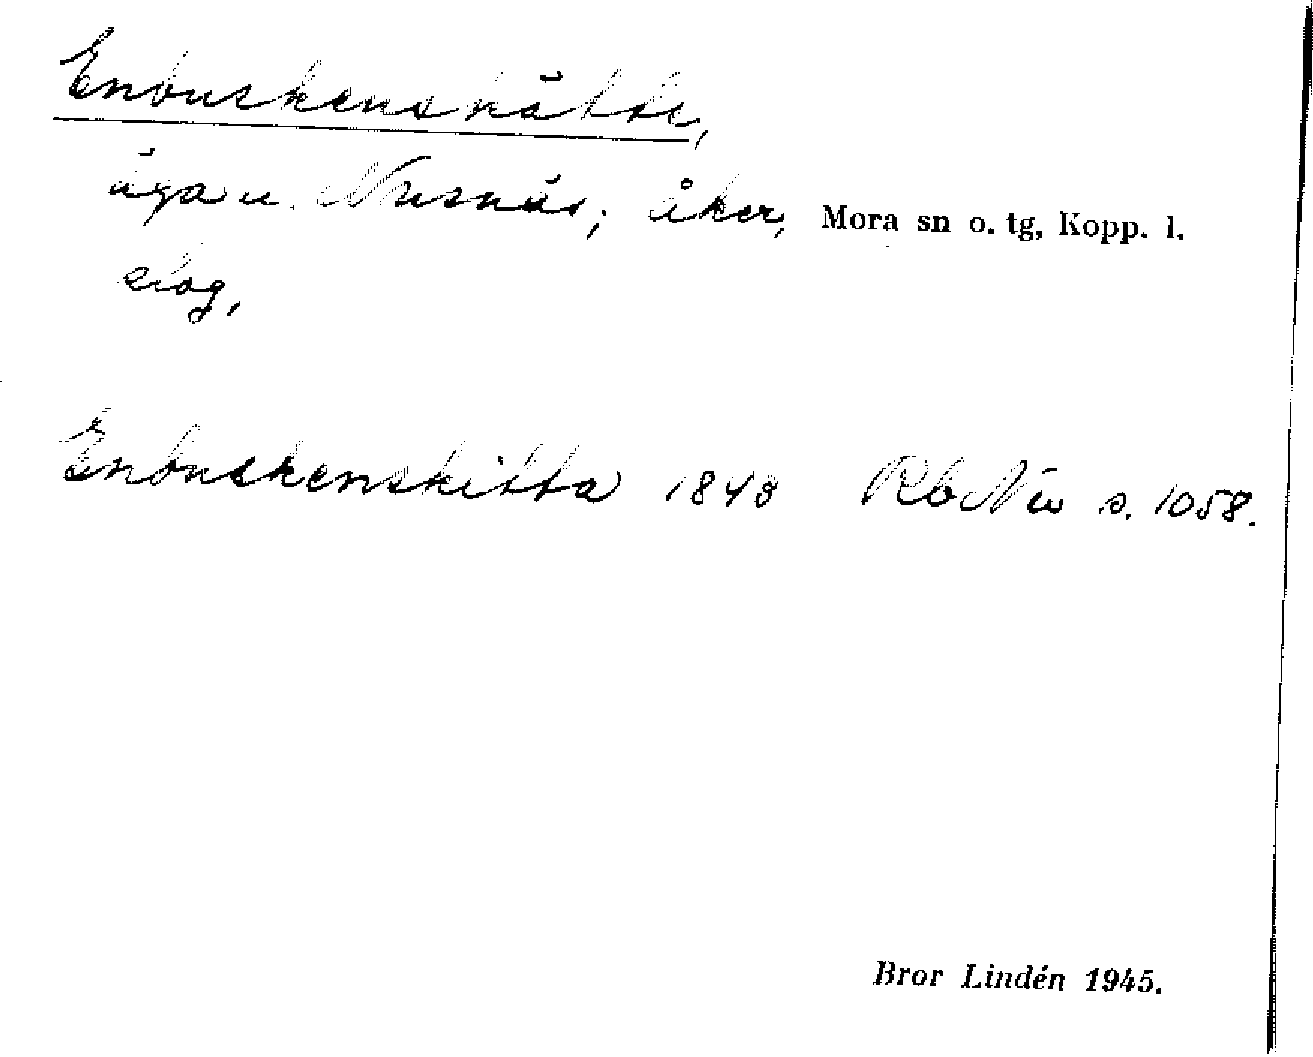 Enbuskenskätte,
äga u. Nusnäs; åker, Mora sn o. tg, Kopp. l.
slog,
Enbuskenskitta 1848 Rb s. 1058.
Bror Lindén 1945.